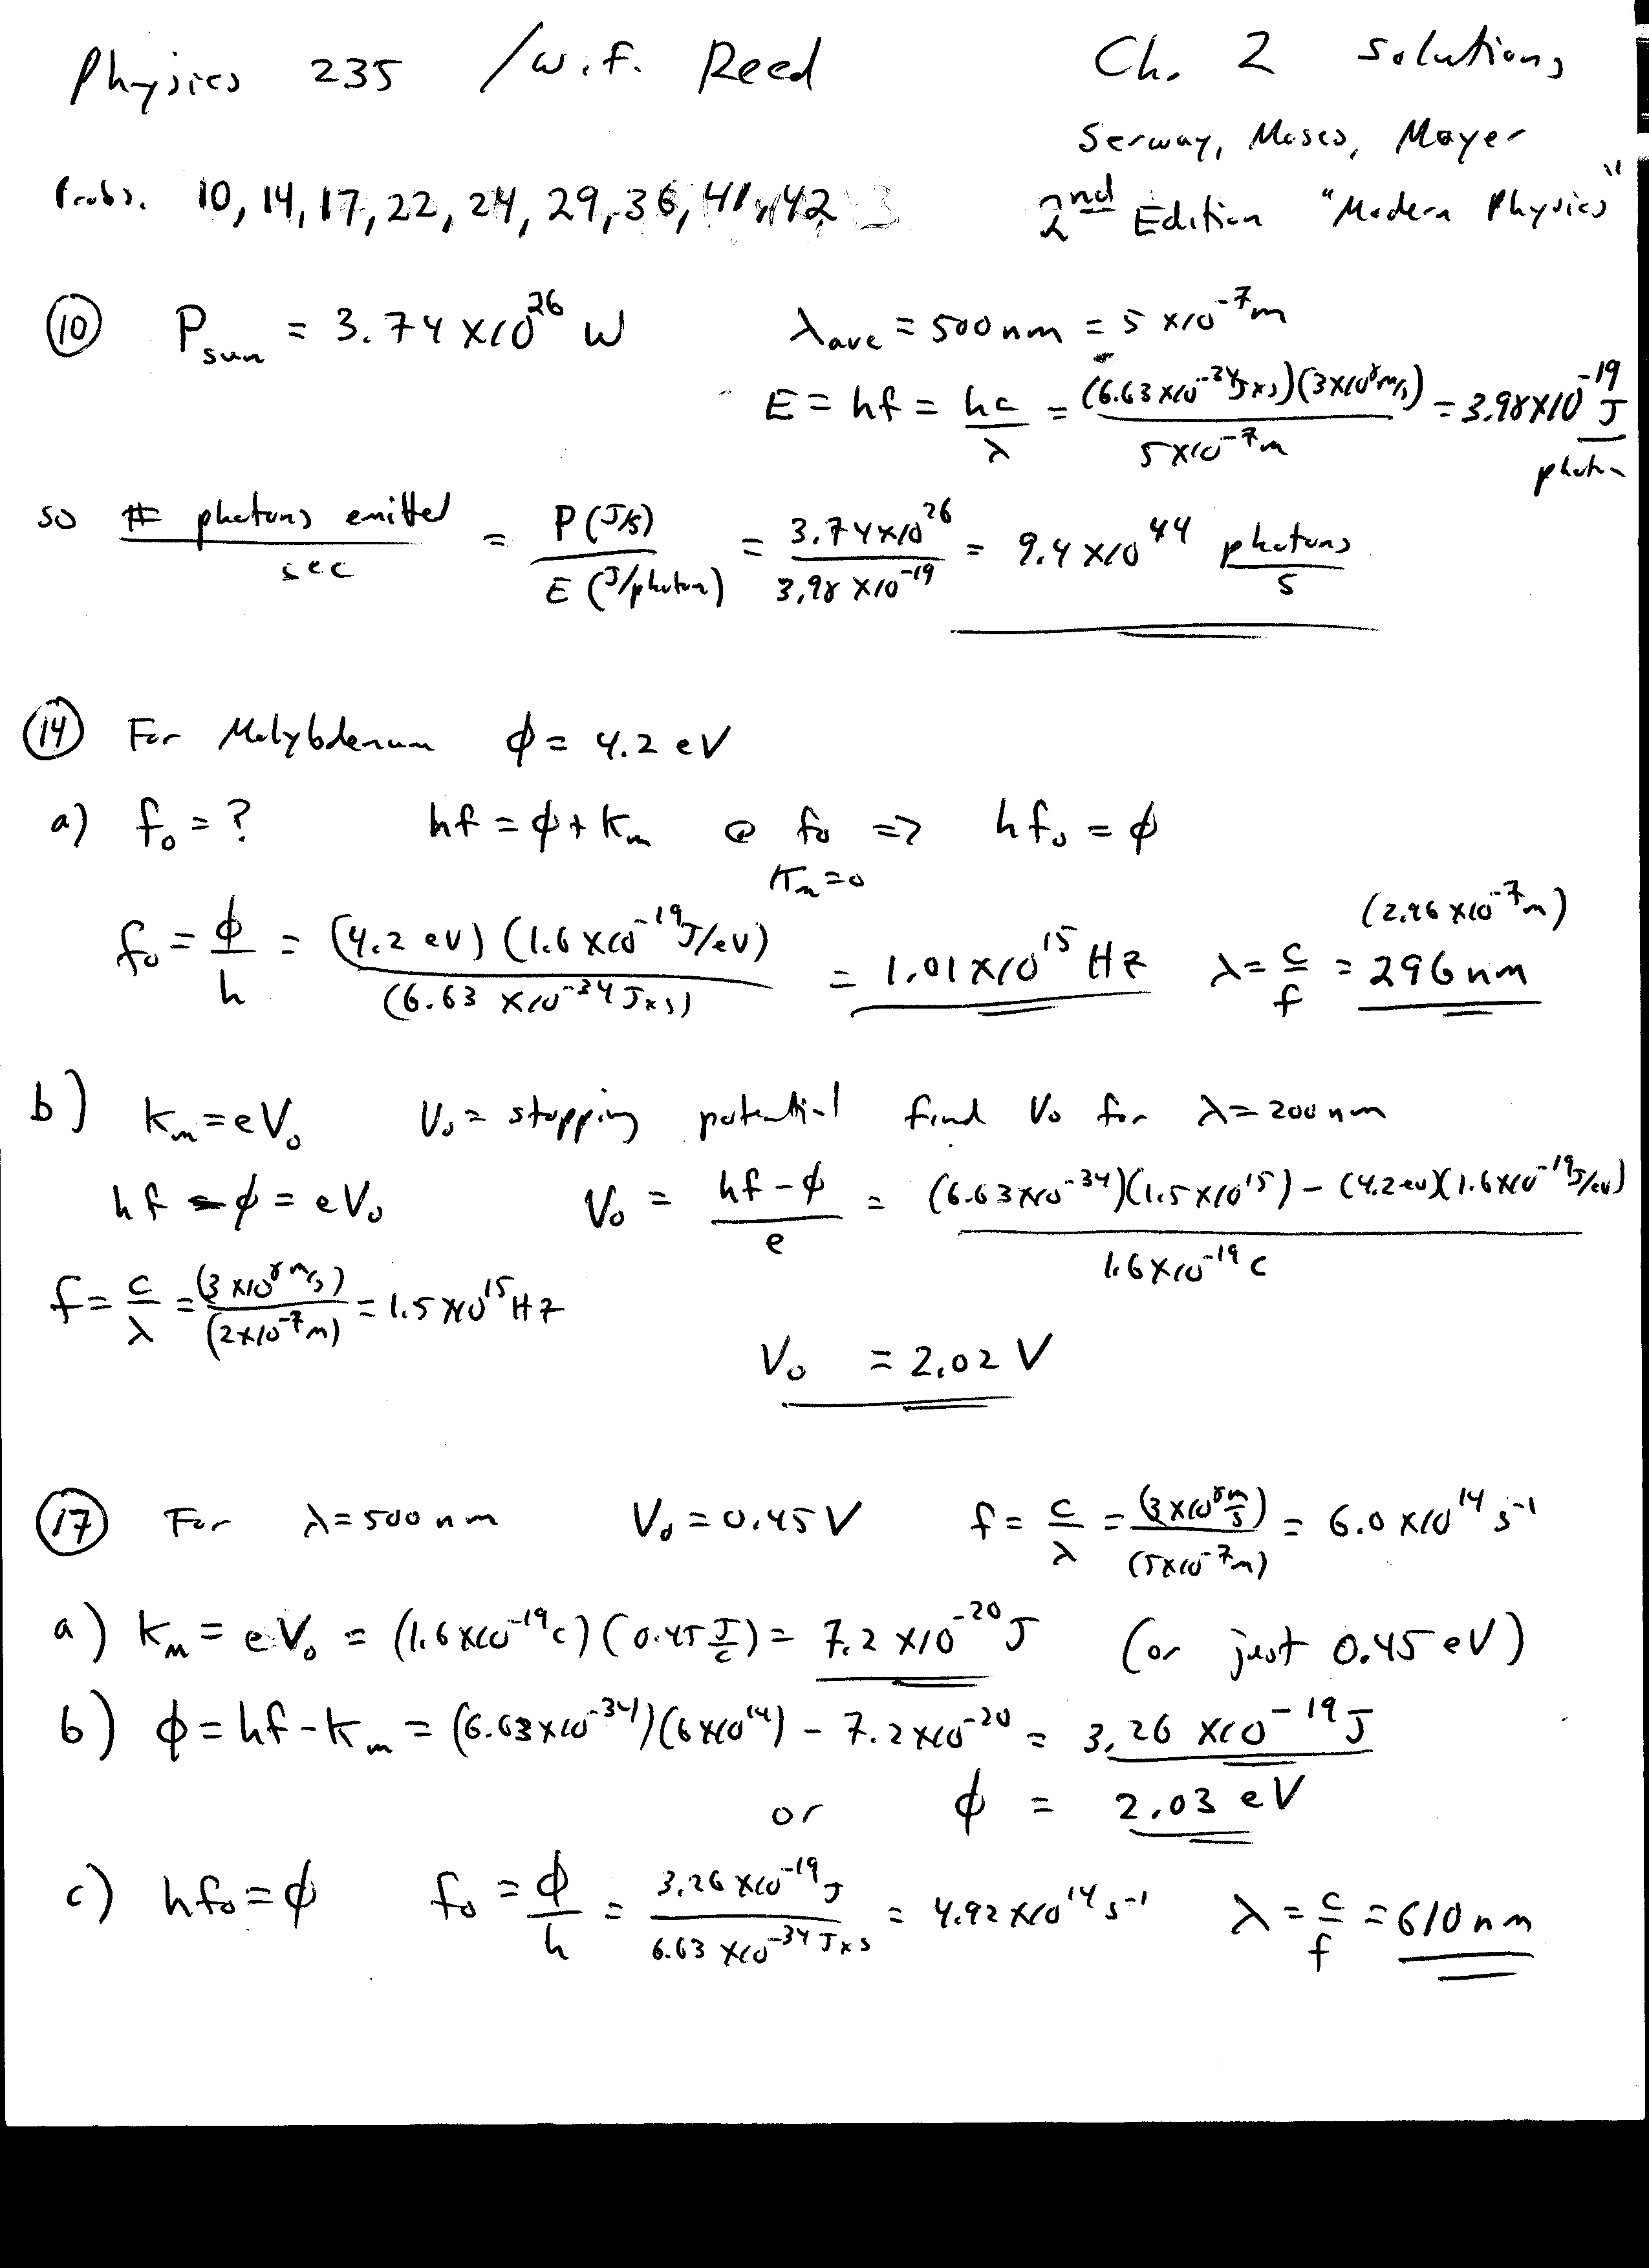 Physics 235 / W.F. Reed Ch. 2 Solutions
Serway, Moses, Moyer
Probs. 10, 14, 17, 22, 24, 29, 36, 41, 42 2nd Edition "Modern Physics"
(10) P_sun = 3.74 x10^26 W λave = 500 nm = 5 x10^-7 m
E = hf = hc/λ = (6.63 x10^-34 Jxs)(3x10^8 m/s)/(5x10^-7 m) = 3.98x10^-19 J/photon
so # photons emitted/sec = P (J/s)/E (J/photon) = 3.74x10^26/3.98 x10^-19 = 9.4 x10^44 photons/s
(14) For Molybdenum ϕ = 4.2 eV
a) f₀ = ? hf = ϕ + Km @ f₀ => hf₀ = ϕ
Km = 0
(2.96 x10^-7 m)
f₀ = ϕ/h = (4.2 eV) (1.6 x10^-19 J/eV)/(6.63 x10^-34 Jxs) = 1.01x10^15 Hz λ = c/f = 296 nm
b) Km = eV₀ V₀ = stopping potential find V₀ for λ = 200 nm
hf - ϕ = eV₀ V₀ = (hf - ϕ)/e = ((6.63x10^-34)(1.5x10^15) - (4.2 eV)(1.6x10^-19 J/eV))/(1.6x10^-19 C)
f = c/λ = (3 x10^8 m/s)/(2x10^-7 m) = 1.5 x10^15 Hz
V₀ = 2.02 V
(17) For λ = 500 nm V₀ = 0.45 V f = c/λ = (3 x10^8 m/s)/(5x10^-7 m) = 6.0 x10^14 s^-1
a) Km = eV₀ = (1.6 x10^-19 C) (0.45 J/C) = 7.2 x10^-20 J (or just 0.45 eV)
b) ϕ = hf - Km = (6.63x10^-34)(6x10^14) - 7.2x10^-20 = 3.26 x10^-19 J
or ϕ = 2.03 eV
c) hf₀ = ϕ f₀ = ϕ/h = 3.26 x10^-19 J/6.63 x10^-34 Jxs = 4.92 x10^14 s^-1 λ = c/f = 610 nm